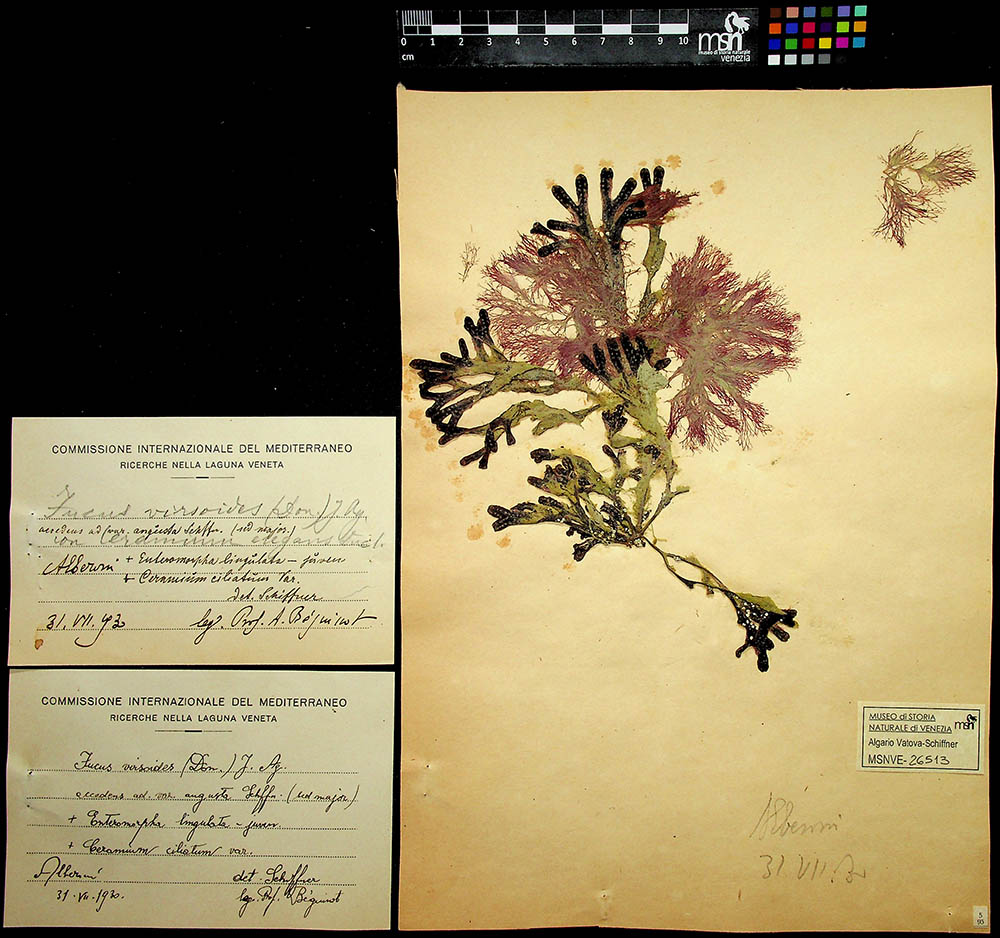 0 1 2 3 4 5 6 7 8 9 10
cm
msn
museo di storia naturale
venezia
COMMISSIONE INTERNAZIONALE DEL MEDITERRANEO
RICERCHE NELLA LAGUNA VENETA
Fucus virsoides (Don.) J. Ag.
accedens ad (var. angusta Schffn. (sed major.)
con Ceramium elegans
Alberoni + Enteromorpha lingulata – juven
+ Ceramium ciliatum var.
det. Schiffner
31. VII. 930 leg. Prof. A. Béguinot
COMMISSIONE INTERNAZIONALE DEL MEDITERRANEO
RICERCHE NELLA LAGUNA VENETA
Fucus virsoides (Don.) J. Ag.
accedens ad. var. angusta Schffn. (sed major)
+ Enteromorpha lingulata – juven.
+ Ceramium ciliatum var.
Alberoni det. Schiffner
31. VII. 930. leg. Prof. Béguinot
MUSEO di STORIA
NATURALE di VENEZIA msn
Algario Vatova-Schiffner
MSNVE-26513
Alberoni
31. VII. 30
5
93